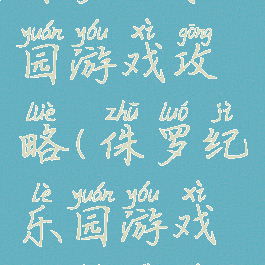 yuán yóu xì gōng
园游戏攻
lüè zhū luó jì
略(侏罗纪
lè yuán yóu xì
乐园游戏